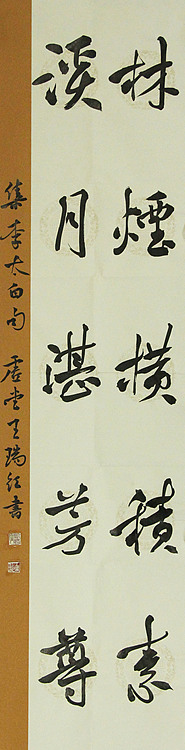 林煙横積素
溪月湛芳尊
集李太白句 王瑞書